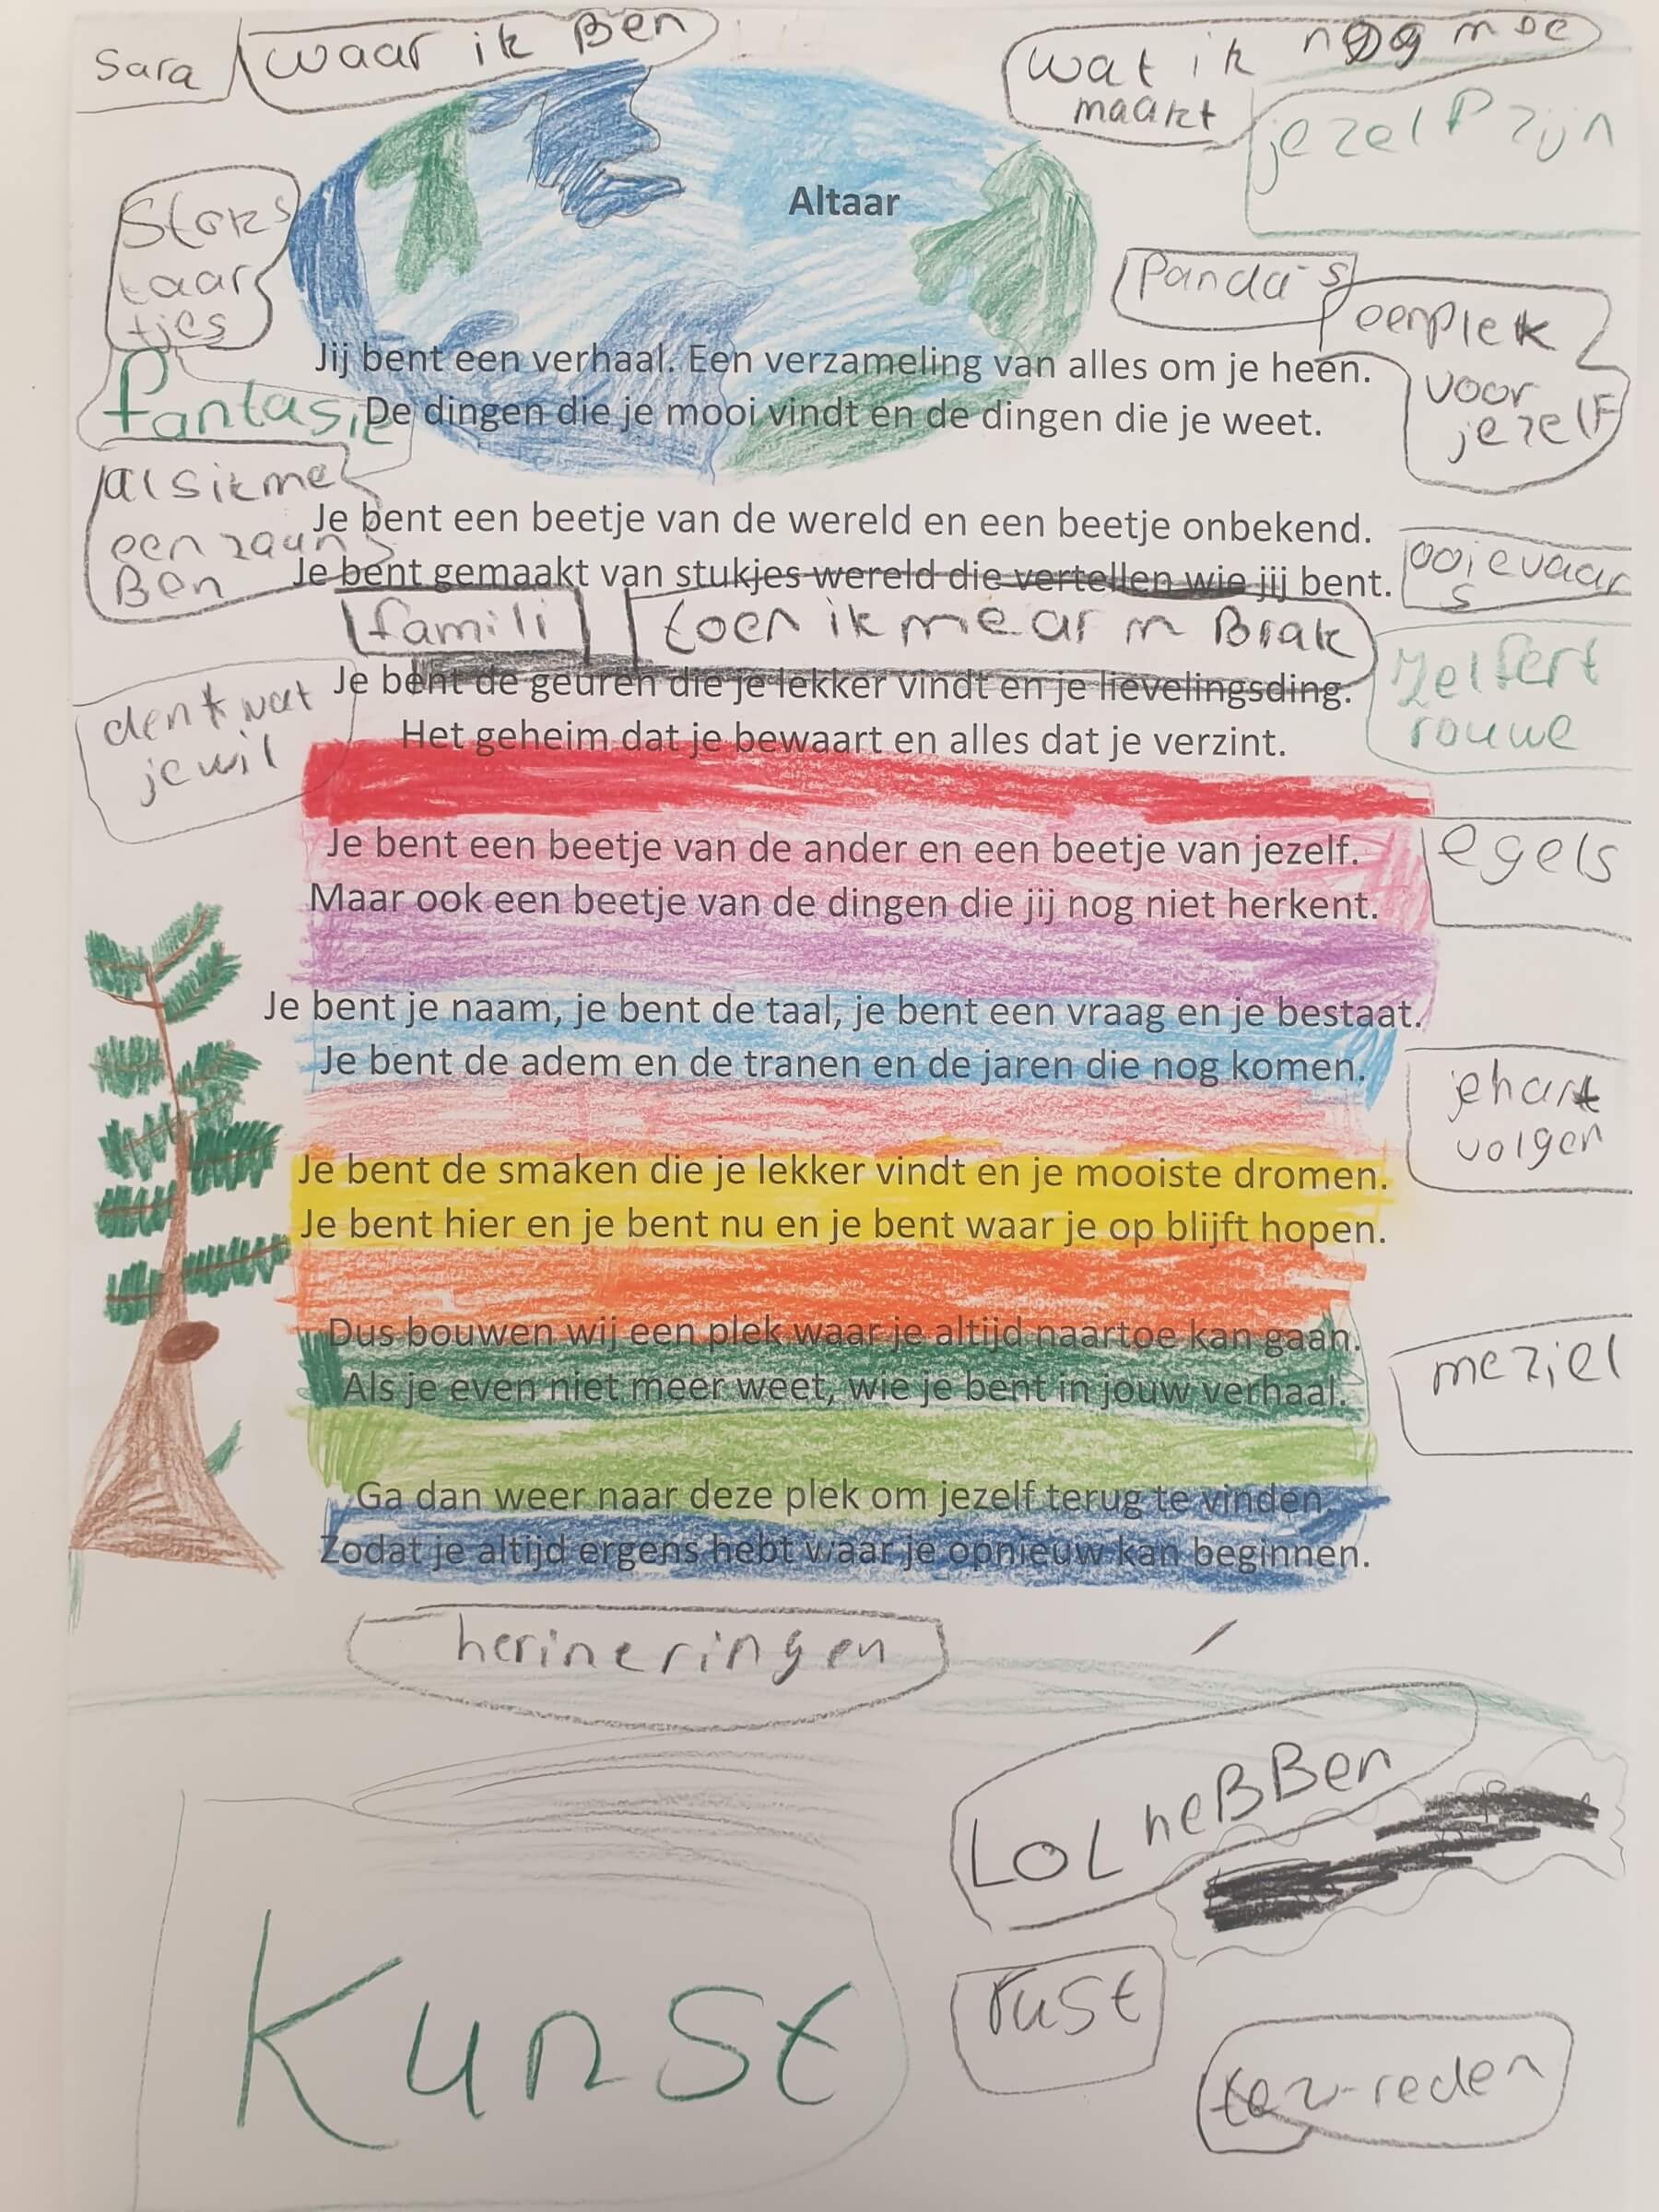 Sara
waar ik Ben
wat ik nog moe
maakt
jezelf zijn
Altaar
Stoks
taar
tjes
Panda's
eenplek
voor
jezelF
Jij bent een verhaal. Een verzameling van alles om je heen.
fantasie
De dingen die je mooi vindt en de dingen die je weet.
alsikme
een zaam
Ben
Je bent een beetje van de wereld en een beetje onbekend.
Je bent gemaakt van stukjes wereld die vertellen wie jij bent.
ooievaar
s
famili
toen ik me ar m Brak
Je bent de geuren die je lekker vindt en je lievelingsding.
Het geheim dat je bewaart en alles dat je verzint.
denk wat
je wil
Zelfert
rouwe
Je bent een beetje van de ander en een beetje van jezelf.
Maar ook een beetje van de dingen die jij nog niet herkent.
egels
Je bent je naam, je bent de taal, je bent een vraag en je bestaat.
Je bent de adem en de tranen en de jaren die nog komen.
jehart
volgen
Je bent de smaken die je lekker vindt en je mooiste dromen.
Je bent hier en je bent nu en je bent waar je op blijft hopen.
Dus bouwen wij een plek waar je altijd naartoe kan gaan.
Als je even niet meer weet, wie je bent in jouw verhaal.
meziel
Ga dan weer naar deze plek om jezelf terug te vinden.
Zodat je altijd ergens hebt waar je opnieuw kan beginnen.
herineringen
LOL heBBen
Kunst
rust
-reden